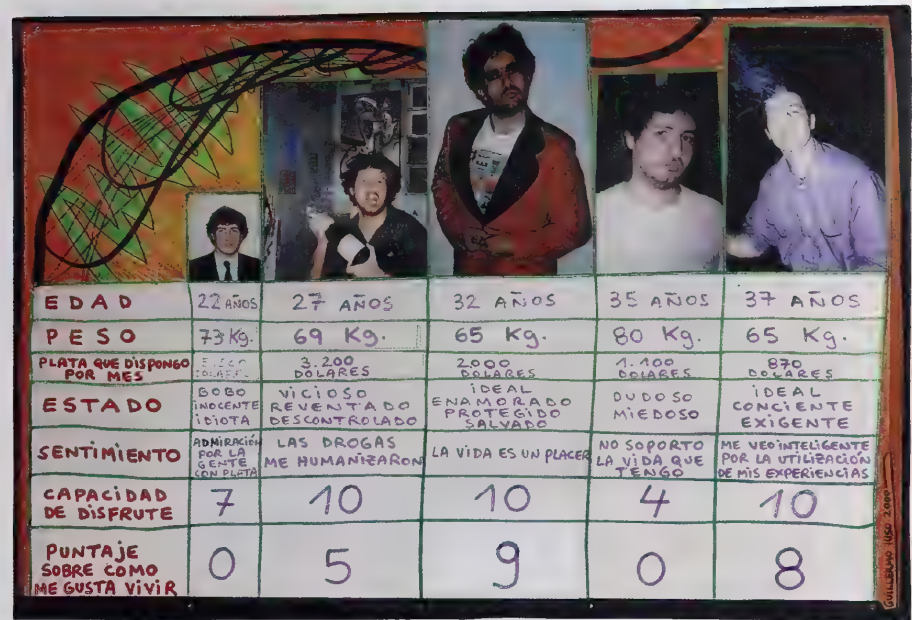 EDAD 22 AÑOS 27 AÑOS 32 AÑOS 35 AÑOS 37 AÑOS
PESO 73 Kg. 69 Kg. 65 Kg. 80 Kg. 65 Kg.
PLATA QUE DISPONGO
POR MES
3.200
DOLARES
2000
DOLARES
1.100
DOLARES
870
DOLARES
ESTADO
BOBO
INOCENTE
IDIOTA
VICIOSO
REVENTADO
DESCONTROLADO
IDEAL
ENAMORADO
PROTEGIDO
SALVADO
DUDOSO
MIEDOSO
IDEAL
CONCIENTE
EXIGENTE
SENTIMIENTO
ADMIRACIÓN
POR LA
GENTE
CON PLATA
LAS DROGAS
ME HUMANIZARON
LA VIDA ES UN PLACER
NO SOPORTO
LA VIDA QUE
TENGO
ME VEO INTELIGENTE
POR LA UTILIZACIÓN
DE MIS EXPERIENCIAS
CAPACIDAD
DE DISFRUTE
7 10 10 4 10
PUNTAJE
SOBRE COMO
ME GUSTA VIVIR
0 5 9 0 8
GUILLERMO IUSO 2000